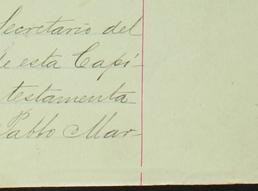 Secretario del
de esta Capi-
testamenta
Pablo Mar-